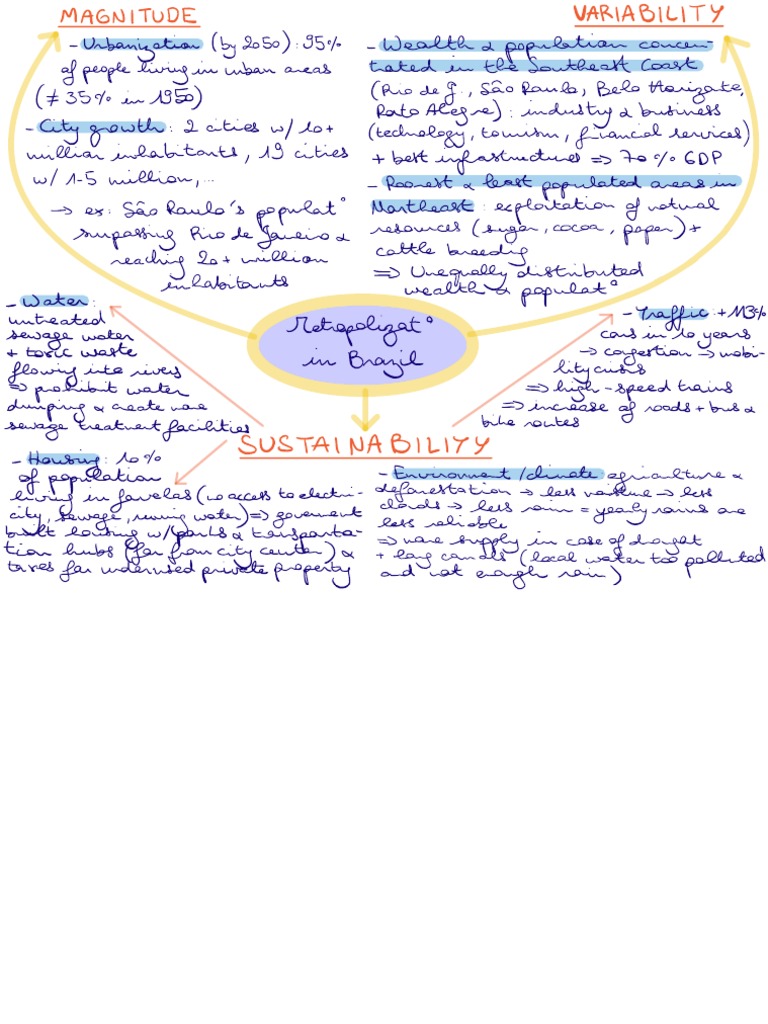 MAGNITUDE
- Urbanization (by 2050): 95%
of people living in urban areas
(≠ 35% in 1950)
- City growth: 2 cities w/ 10+
million inhabitants, 19 cities
w/ 1-5 million,...
→ ex: São Paulo's populat°
surpassing Rio de Janeiro &
reaching 20+ million
inhabitants
VARIABILITY
- Wealth & population concen-
trated in the Southeast Coast
(Rio de J., São Paulo, Belo Horizonte,
Porto Alegre): industry & business
(technology, tourism, financial services)
+ best infrastructures ⇒ 70% GDP
- Poorest & least populated areas in
Northeast: exploitation of natural
resources (sugar, cocoa, paper) +
cattle breeding
⇒ Unequally distributed
wealth & populat°
Metropolizat°
in Brazil
- Water:
untreated
sewage water
+ toxic waste
flowing into rivers
⇒ prohibit water
dumping & create more
sewage treatment facilities
- Traffic: + 113%
cars in 10 years
→ congestion → mobi-
lity crisis
⇒ high-speed trains
⇒ increase of roads + bus &
bike routes
SUSTAINABILITY
- Housing: 10%
of population
living in favelas (no access to electri-
city, sewage, running water) ⇒ government
built housing w/ parks & transporta-
tion hubs (far from city center) &
taxes for underused private property
- Environment/climate agriculture &
deforestation → less moisture → less
clouds → less rain = yearly rains are
less reliable
⇒ more supply in case of drought
+ long canals (local water too polluted
and not enough rain)